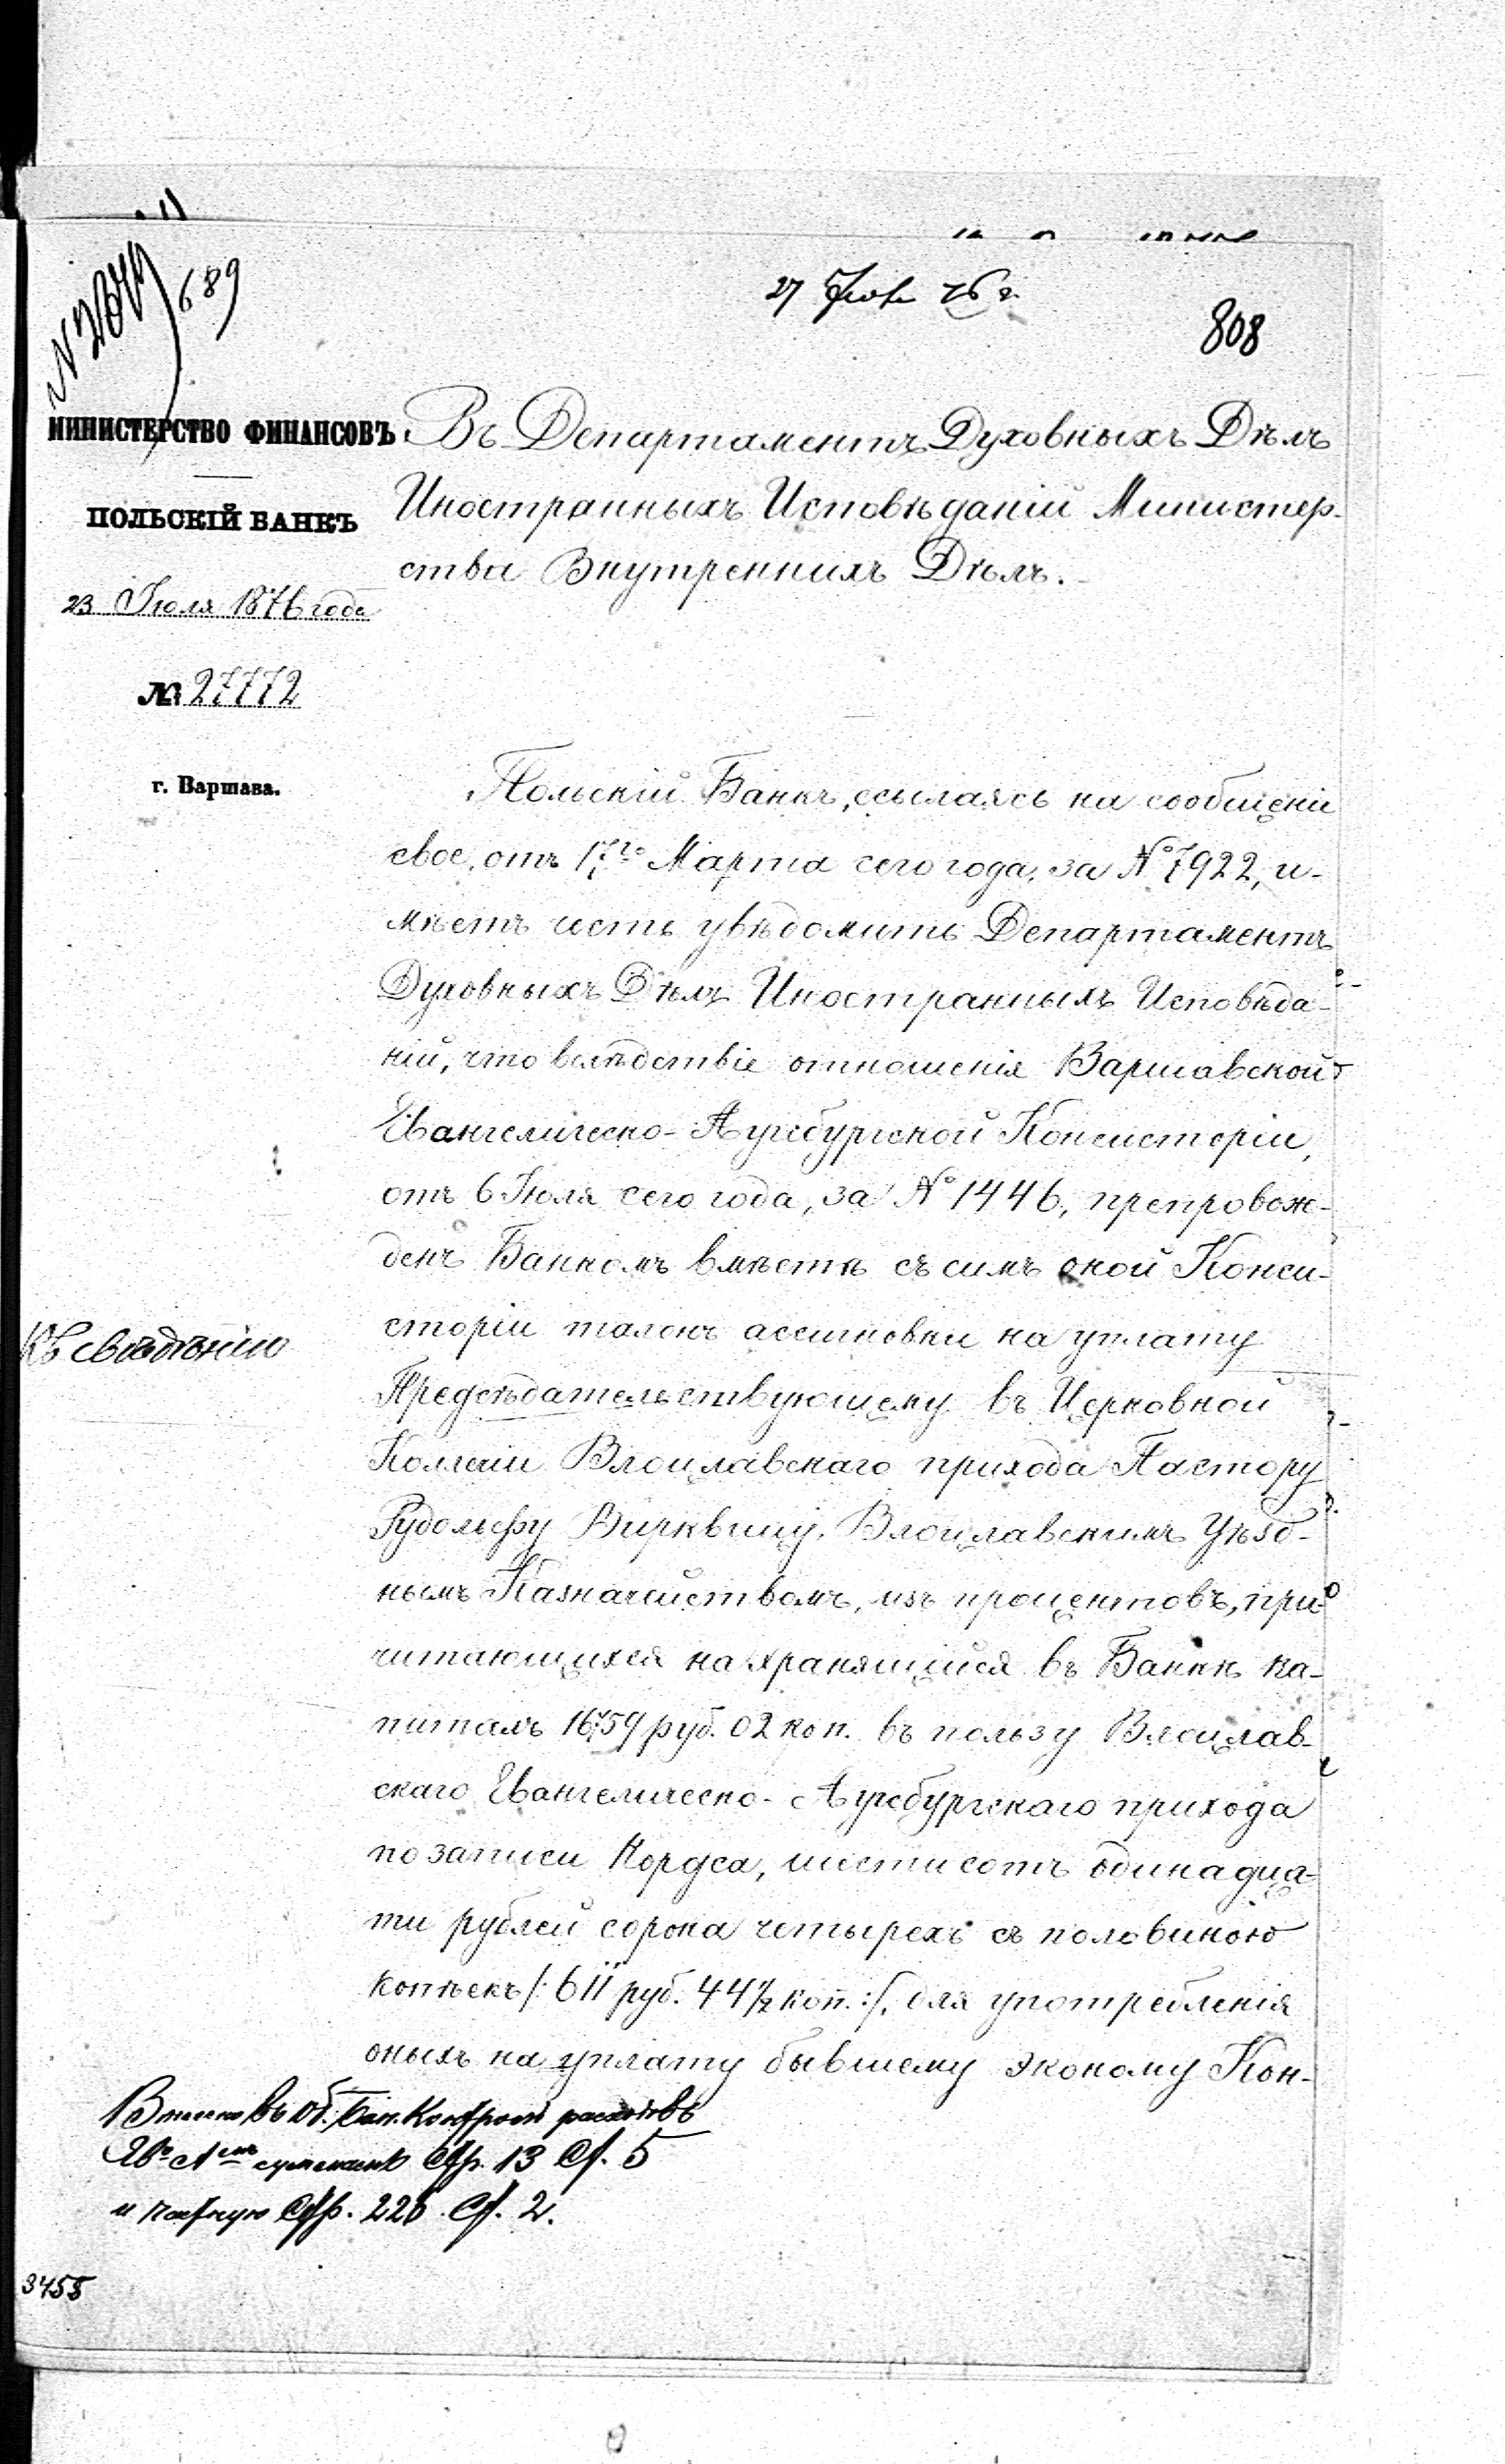 689
27 Іюля 76 г.
808
МИНИСТЕРСТВО ФИНАНСОВЪ
ПОЛЬСКІЙ БАНКЪ
23 Іюля 1876 года
№ 27772
г. Варшава.
Въ Департаментъ Духовныхъ Дѣлъ
Иностранныхъ Исповѣданій Министер-
ства Внутреннихъ Дѣлъ.
Польскій Банкъ, ссылаясь на сообщеніе
свое, отъ 17го Марта сего года, за № 7922, и-
мѣетъ честь увѣдомить Департаментъ
Духовныхъ Дѣлъ Иностранныхъ Исповѣда-
ній, что вслѣдствіе отношенія Варшавской
Евангелическо-Аугсбургской Консисторіи,
отъ 6 Іюля сего года, за № 1446, препровож-
денъ Банкомъ вмѣстѣ съ симъ оной Конси-
сторіи талонъ ассигновки на уплату
Къ свѣдѣнію
Предсѣдательствующему въ Церковной
Коллегіи Влоцлавскаго прихода Пастору
Рудольфу Бирквицу, Влоцлавскимъ Уѣзд-
нымъ Казначействомъ, изъ процентовъ, при-
читающихся на хранящійся въ Банкѣ ка-
питалъ 16759 руб. 02 коп. въ пользу Влоцлав-
скаго Евангелическо-Аугсбургскаго прихода
по записи Кордса, шестисотъ одинадца-
ти рублей сорока четырехъ съ половиною
копѣекъ /: 611 руб. 44½ коп. :/, для употребленія
оныхъ на уплату бывшему эконому Кон-
Внесено въ об. Бан. Контроля расходовъ
Стр. 13 Ст. 5
и частную Стр. 226 Ст. 2.
3455